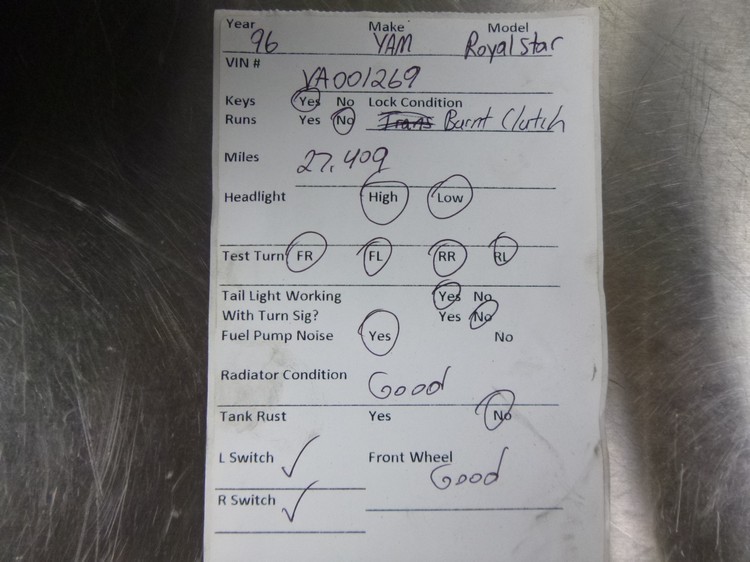 Year Make Model
96 YAM Royal Star
VIN #
VA001269
Keys Yes No Lock Condition
Runs Yes No Trans Burnt Clutch
Miles 27,409
Headlight High Low
Test Turn FR FL RR RL
Tail Light Working Yes No
With Turn Sig? Yes No
Fuel Pump Noise Yes No
Radiator Condition Good
Tank Rust Yes No
L Switch ✓ Front Wheel
Good
R Switch ✓